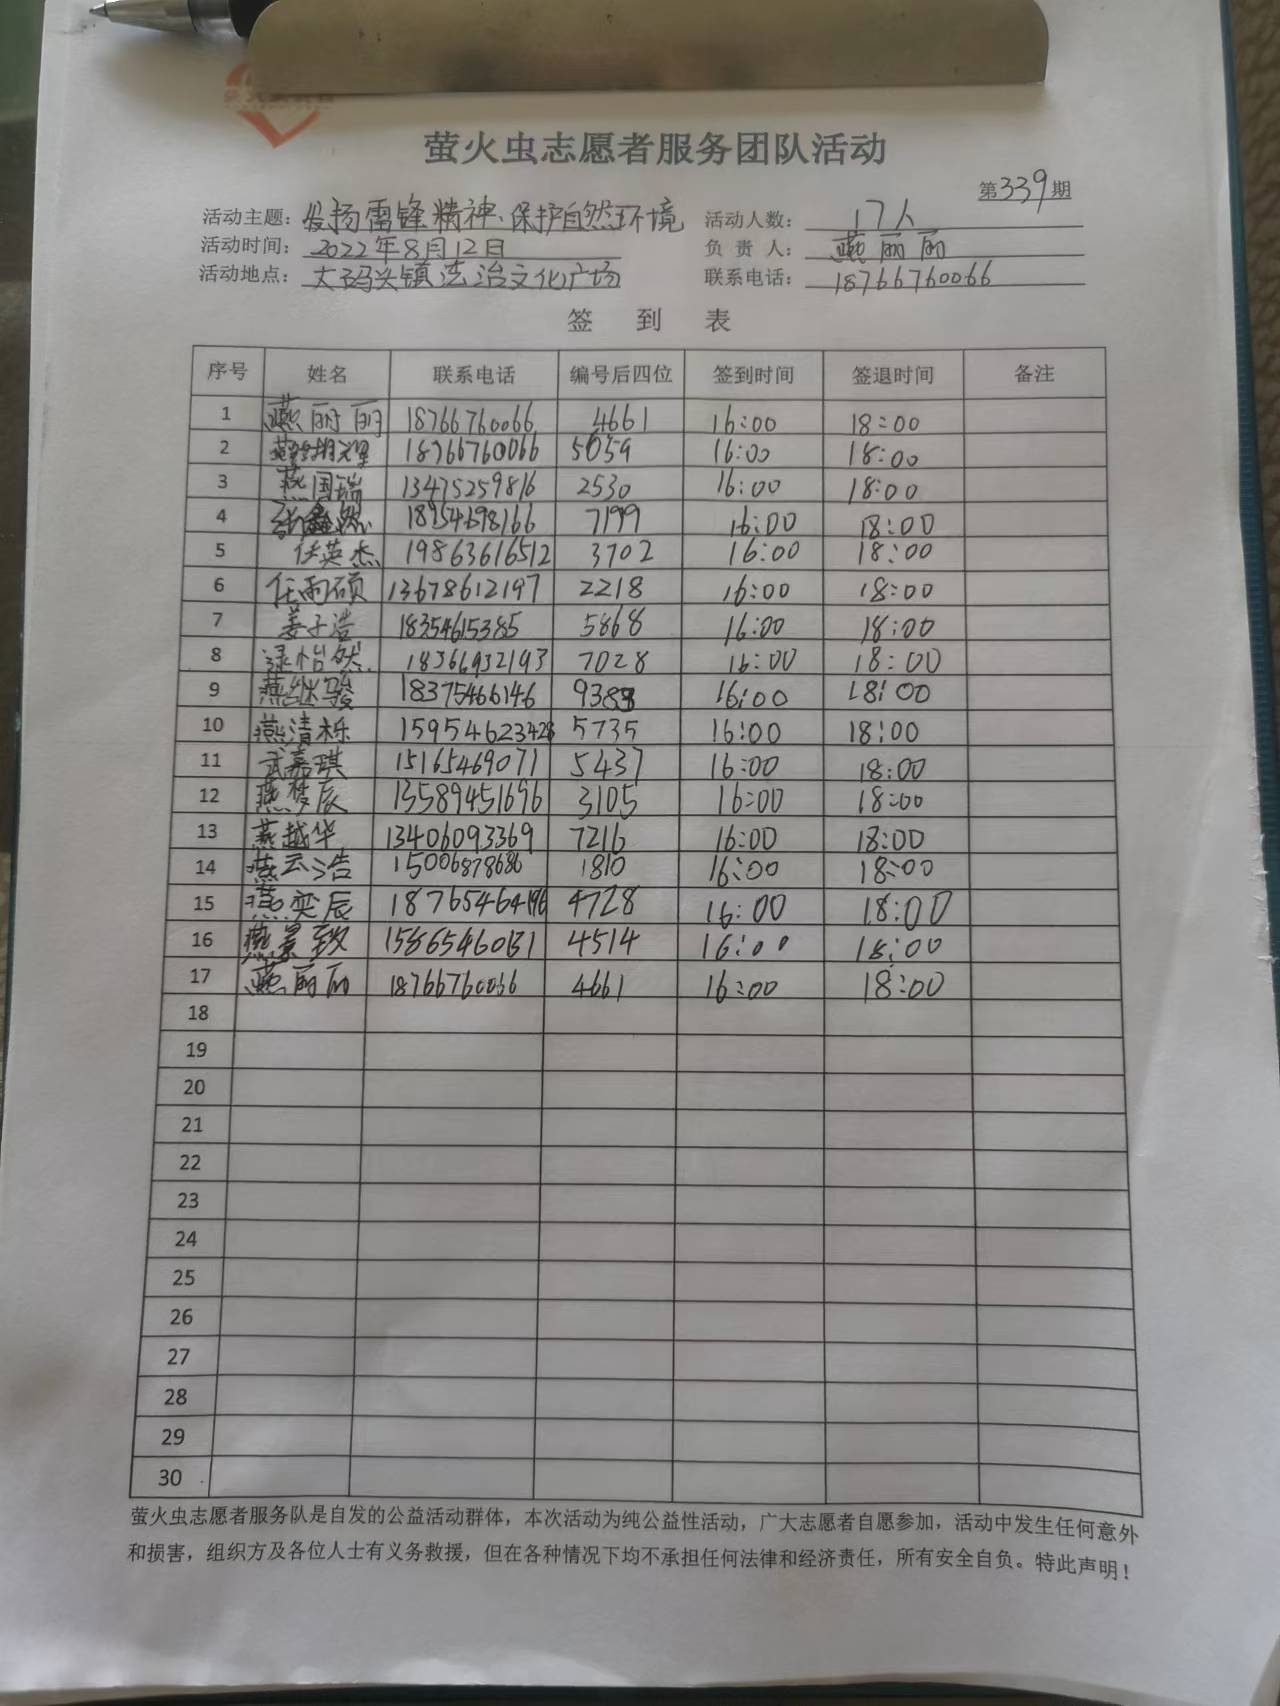 萤火虫志愿者服务团队活动
第339期
活动主题: 发扬雷锋精神、保护自然环境 活动人数: 17人
活动时间: 2022年8月12日 负 责 人: 燕丽丽
活动地点: 大码头镇法治文化广场 联系电话: 18766760066
签 到 表
序号 姓名 联系电话 编号后四位 签到时间 签退时间 备注
1 燕丽丽 18766760066 4661 16:00 18:00
2 18766760066 5059 16:00 18:00
3 燕国瑞 13475259816 2530 16:00 18:00
4 18954698166 7199 16:00 18:00
5 任英杰 19863616512 3702 16:00 18:00
6 任雨硕 13678612197 2218 16:00 18:00
7 姜子浩 18354615385 5868 16:00 18:00
8 18366932193 7028 16:00 18:00
9 燕继骏 18375466146 16:00 18:00
10 燕清栎 15954623428 5735 16:00 18:00
11 武嘉琪 15165469071 5437 16:00 18:00
12 燕梦辰 13589451696 3105 16:00 18:00
13 燕越华 13406093369 7216 16:00 18:00
14 燕云浩 15006878686 1810 16:00 18:00
15 燕奕辰 18765464196 4728 16:00 18:00
16 4514 16:00 18:00
17 燕丽丽 18766760066 4661 16:00 18:00
18
19
20
21
22
23
24
25
26
27
28
29
30
萤火虫志愿者服务队是自发的公益活动群体，本次活动为纯公益性活动，广大志愿者自愿参加，活动中发生任何意外
和损害，组织方及各位人士有义务救援，但在各种情况下均不承担任何法律和经济责任，所有安全自负。特此声明！